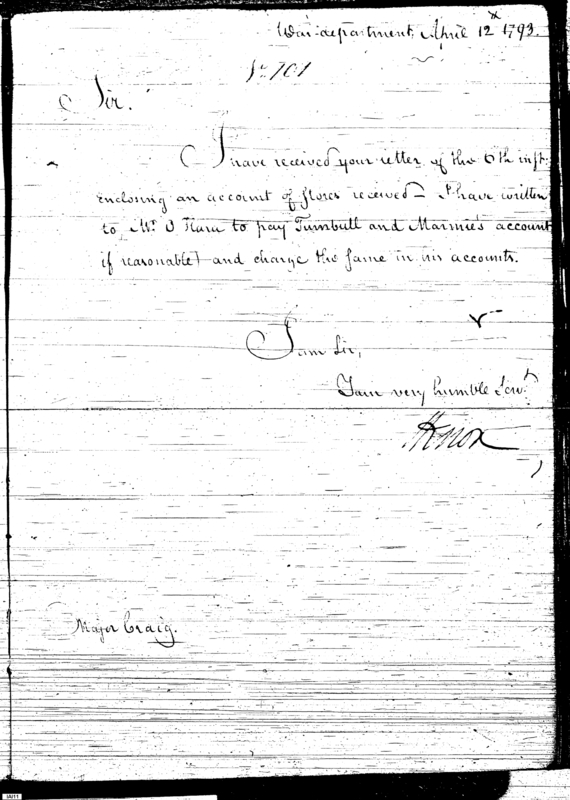 War department April 12th 1793.
Sir.
I have received your letter of the 6th inst:
enclosing an account of stores received – I have written
to Mr. O Hara to pay Turnbull and Marmie's account
if reasonable, and charge the same in his accounts.
I am Sir,
Your very humble Servt
HKnox
Major Craig.